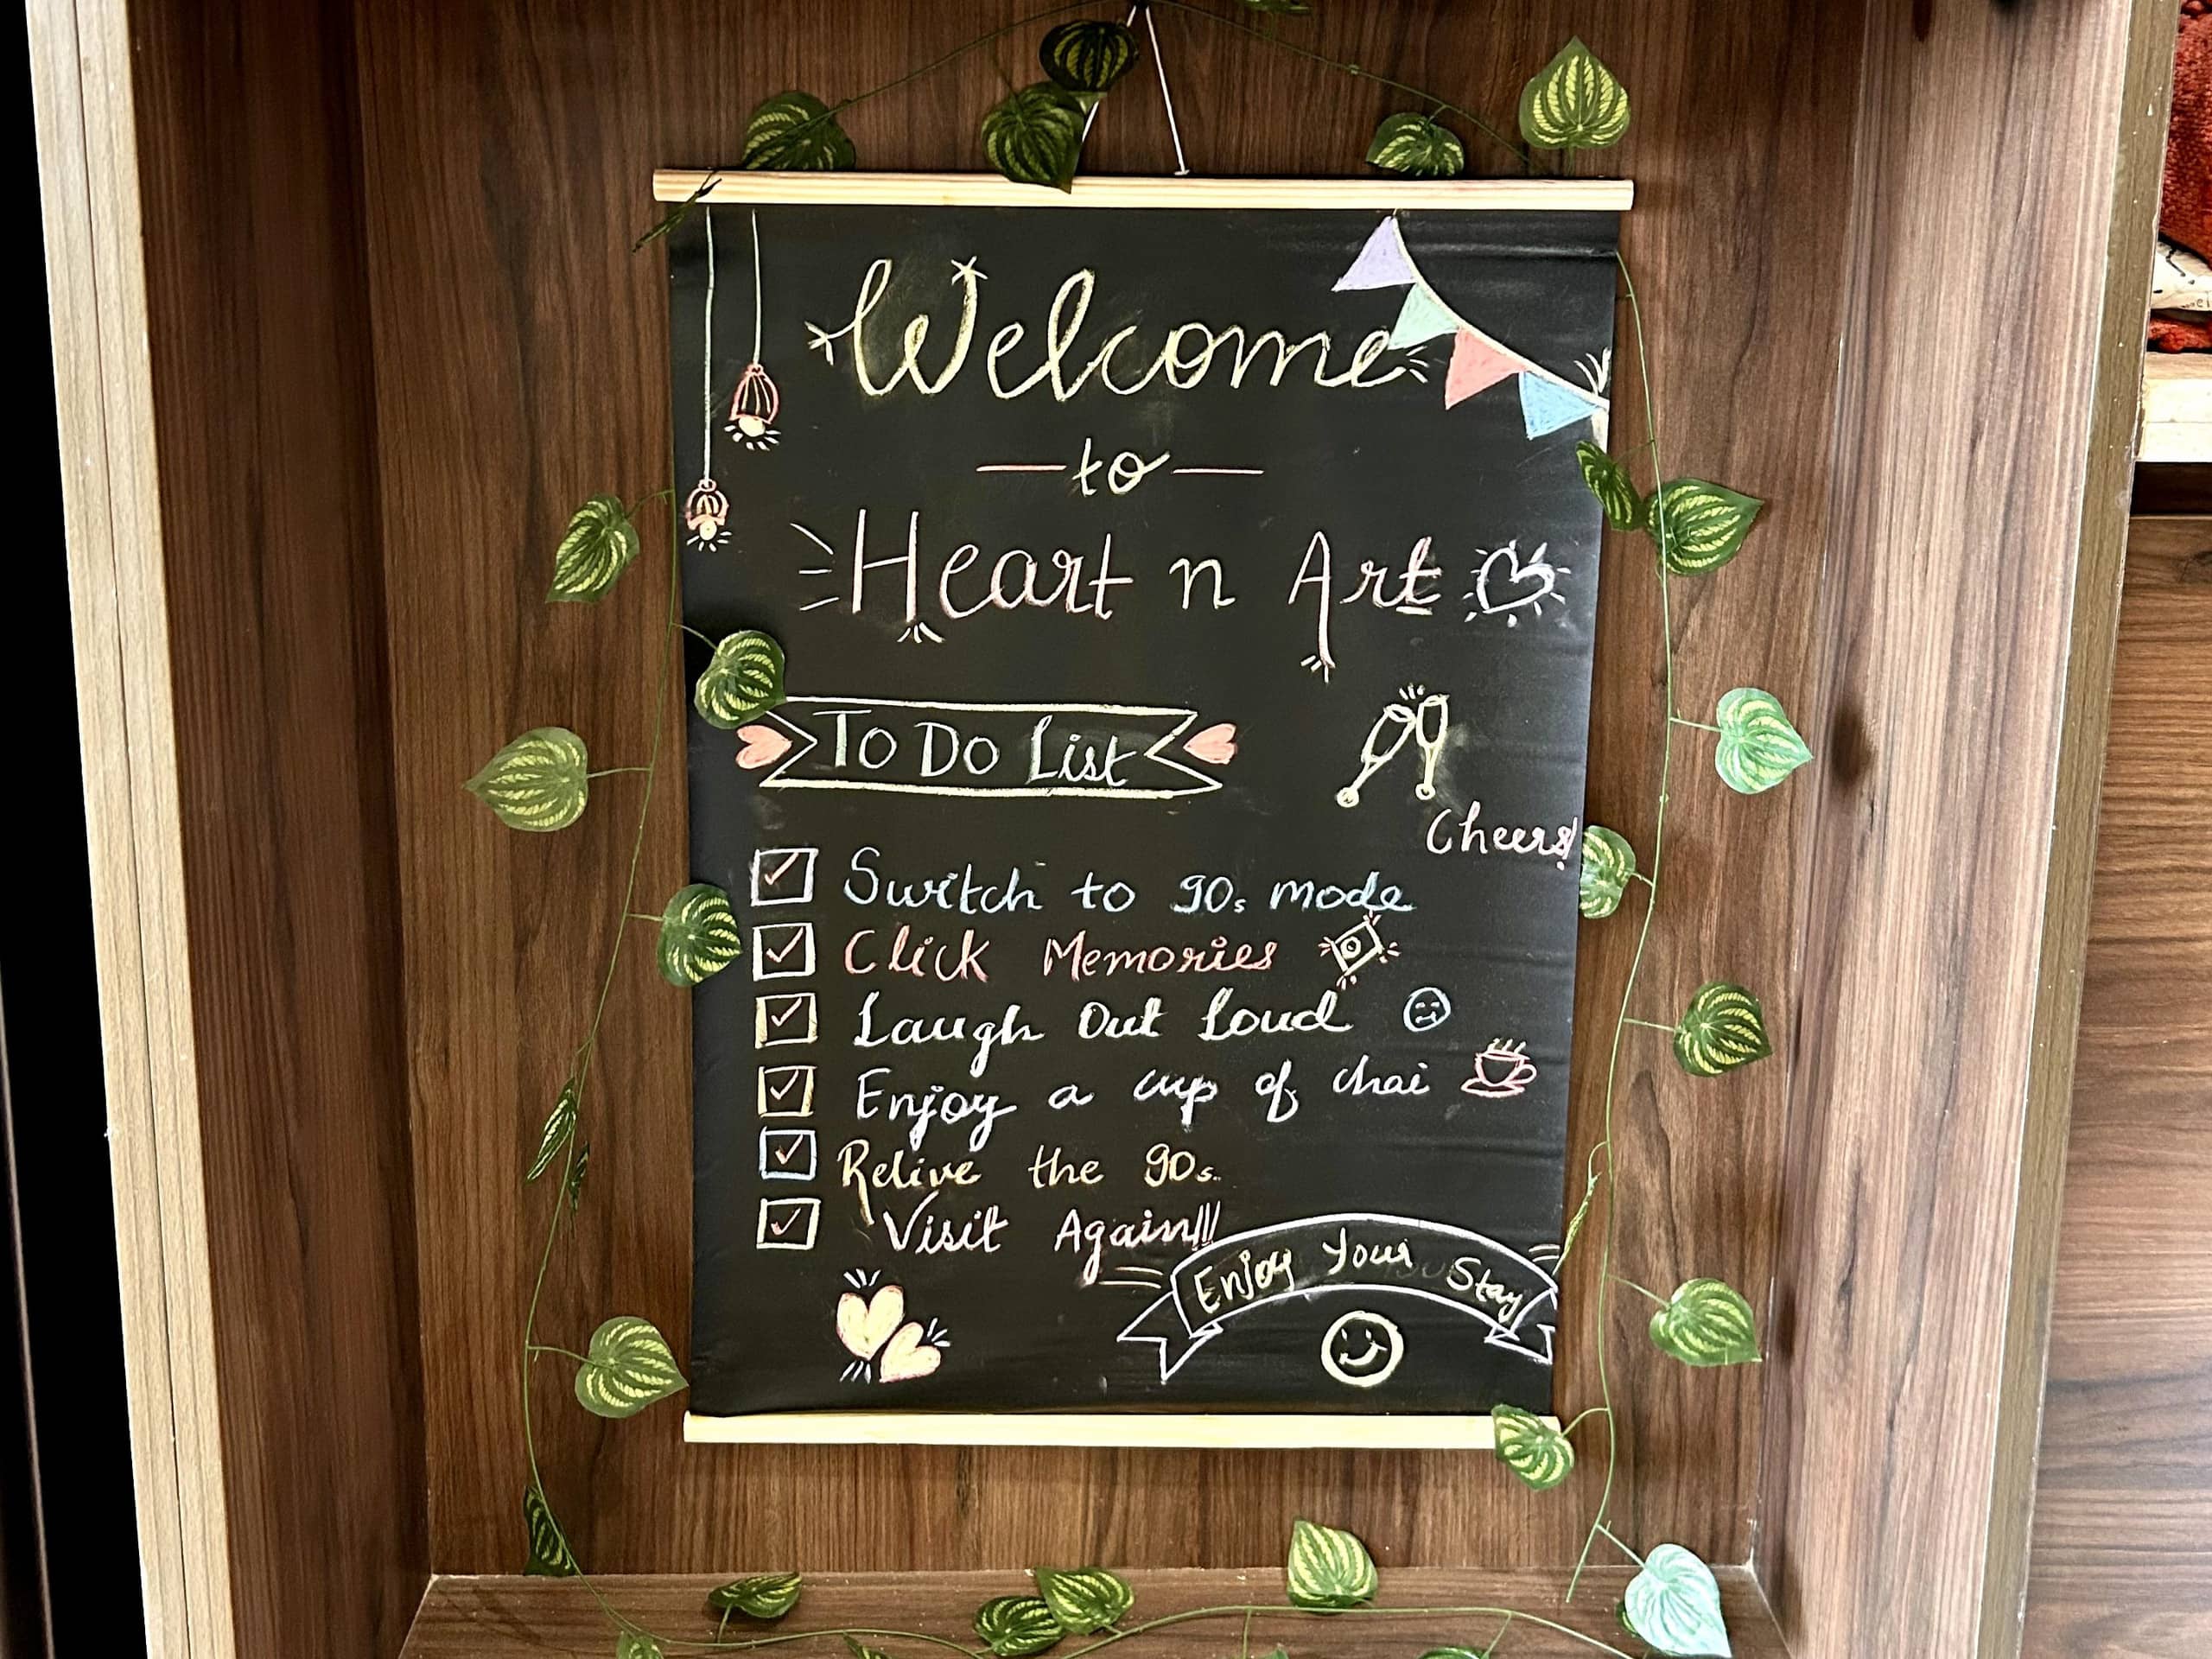 Welcome
to
Heart n Art
To Do List
Cheers!
Switch to 90s mode
Click Memories
Laugh Out Loud
Enjoy a cup of chai
Relive the 90s.
Visit Again!!!
Enjoy Your Stay